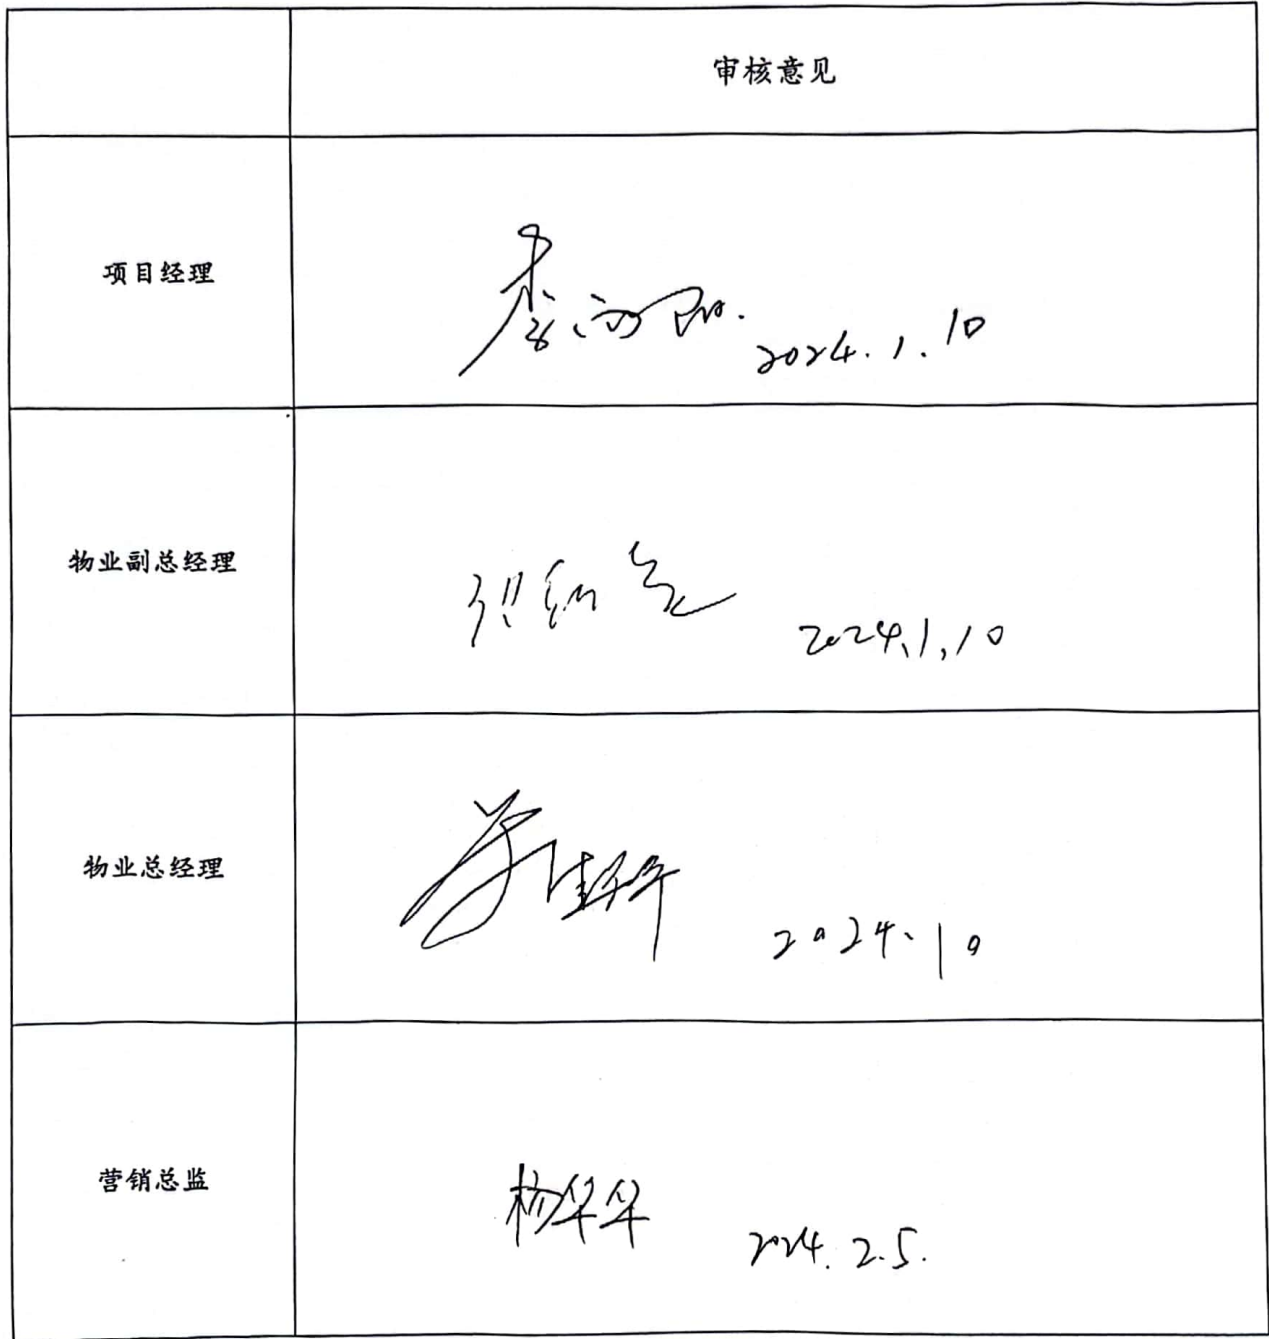 审核意见
项目经理
2024.1.10
物业副总经理
2024.1.10
物业总经理
2024.10
营销总监
杨华华
2024.2.5.